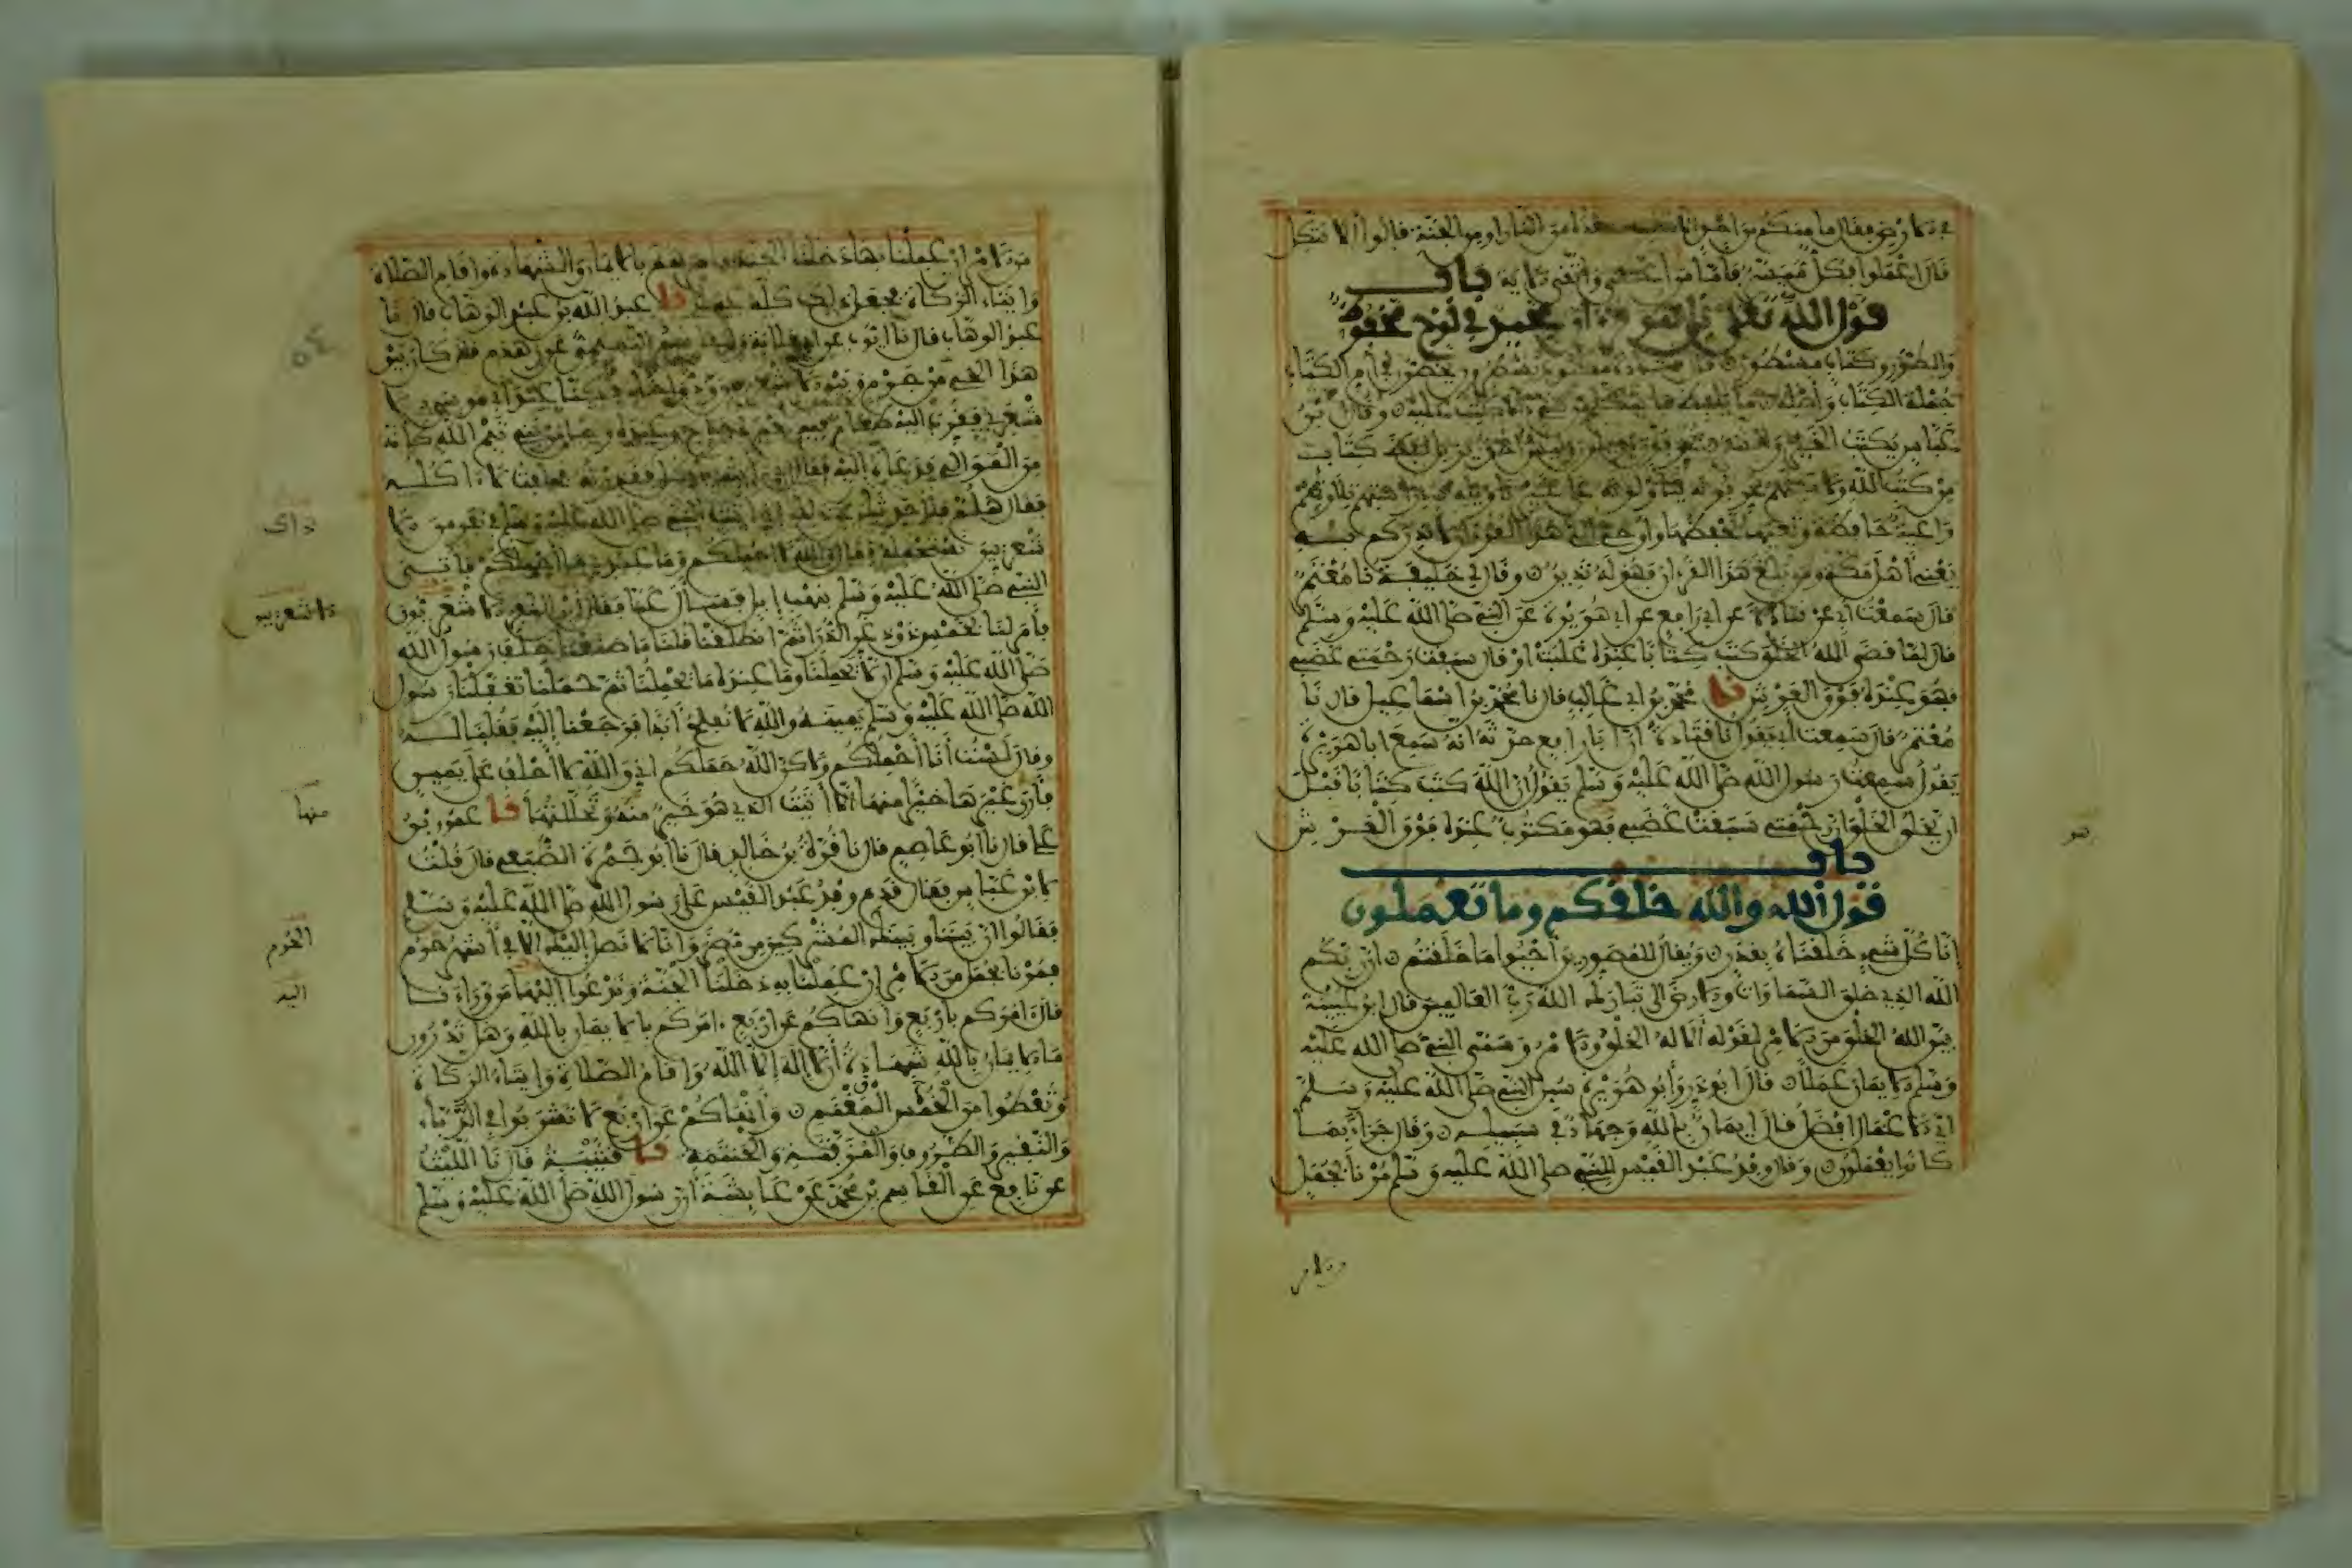 في الارض فقال ما منكم من احد الا من النار او من الجنة قالوا الا نتكل
قال اعملوا فكل ميسر فاما من اعطى واتقى الاية باب
قول الله تعلى بل هو قرءان مجيد في لوح محفوظ
والطور وكتاب مسطور يسطرون يخطون في ام الكتاب
جملة الكتاب واصله ما يلفظ ما يتكلم من شيء الا كتب عليه وقال ابن
عباس يكتب الخير والشر يحرفون يزيلون وليس احد يزيل لفظ كتاب
من كتب الله ولاكنهم يحرفونه يتأولونه على غير تأويله دراستهم تلاوتهم
واعية حافظة وتعيها تحفظها واوحي الي هذا القرءان لانذركم به
يعني اهل مكة ومن بلغ هذا القرءان فهو له نذير وقال لي خليفة نا معتمر
قال سمعت ابي عن قتادة عن ابي رافع عن ابي هريرة عن النبي صلى الله عليه وسلم
قال لما قضى الله الخلق كتب كتابا عنده غلبت او قال سبقت رحمتي غضبي
فهو عنده فوق العرش نا محمد بن ابي غالب قال نا محمد بن اسماعيل قال نا
معتمر قال سمعت ابي يقول نا قتادة ان ابا رافع حدثه انه سمع ابا هريرة
يقول سمعت رسول الله صلى الله عليه وسلم يقول ان الله كتب كتابا قبل
ان يخلق الخلق ان رحمتي سبقت غضبي فهو مكتوب عنده فوق العرش
باب
قول الله والله خلقكم وما تعملون
انا كل شيء خلقناه بقدر ويقال للمصورين احيوا ما خلقتم ان ربكم
الله الذي خلق السماوات والارض الى تبارك الله رب العالمين قال ابن عيينة
بين الله الخلق من الامر لقوله الا له الخلق والامر وسمى النبي صلى الله عليه
وسلم الايمان عملا قال ابو ذر وابو هريرة سئل النبي صلى الله عليه وسلم
اي الاعمال افضل قال ايمان بالله وجهاد في سبيله وقال جزاء بما
كانوا يعملون وقال وفد عبد القيس للنبي صلى الله عليه وسلم مرنا بجمل
من الامر ان عملنا بها دخلنا الجنة فامرهم بالايمان والشهادة واقام الصلاة
وايتاء الزكاة فجعل ذلك كله عملا نا عبد الله بن عبد الوهاب قال نا
عبد الوهاب قال نا ايوب عن ابي قلابة والقاسم التميمي عن زهدم قال كان بين
هذا الحي من جرم وبين الاشعريين ود واخاء فكنا عند ابي موسى الا
شعري فقرب اليه طعام فيه لحم دجاج وعنده رجل من بني تيم الله كانه
من الموالي فدعاه اليه فقال اني رايته ياكل شيئا فقذرته فحلفت لا اكله
فقال هلم فلاحدثك عن ذلك اني اتيت النبي صلى الله عليه وسلم في نفر من الا
شعريين نستحمله فقال والله لا احملكم وما عندي ما احملكم فاتي
النبي صلى الله عليه وسلم بنهب ابل فسال عنا فقال اين النفر الاشعريون
فامر لنا بخمس ذود غر الذرى ثم انطلقنا قلنا ما صنعنا حلف رسول الله
صلى الله عليه وسلم ان لا يحملنا وما عنده ما يحملنا ثم حملنا تغفلنا رسول
الله صلى الله عليه وسلم يمينه والله لا نفلح ابدا فرجعنا اليه فقلنا له
وقال لست انا احملكم ولاكن الله حملكم اني والله لا احلف على يمين
فارى غيرها خيرا منها الا اتيت الذي هو خير منه وتحللتها نا عمرو بن
علي قال نا ابو عاصم قال نا قرة بن خالد قال نا ابو جمرة الضبعي قال قلت
لابن عباس فقال قدم وفد عبد القيس على رسول الله صلى الله عليه وسلم
فقالوا ان بيننا وبينك المشركين من مضر وانا لا نصل اليك الا في اشهر حرم
فمرنا بجمل من الامر ان عملنا به دخلنا الجنة وندعوا اليها من وراءنا
قال امركم باربع وانهاكم عن اربع امركم بالايمان بالله وهل تدرون
ما الايمان بالله شهادة ان لا اله الا الله واقام الصلاة وايتاء الزكاة
وتعطوا من المغنم الخمس وانهاكم عن اربع لا تشربوا في الدباء
والنقير والظروف المزفتة والحنتمة نا قتيبة قال نا الليث
عن نافع عن القاسم بن محمد عن عائشة ان رسول الله صلى الله عليه وسلم
ذاك
الاشعريين
منها
الحرم
اليه
من الامر